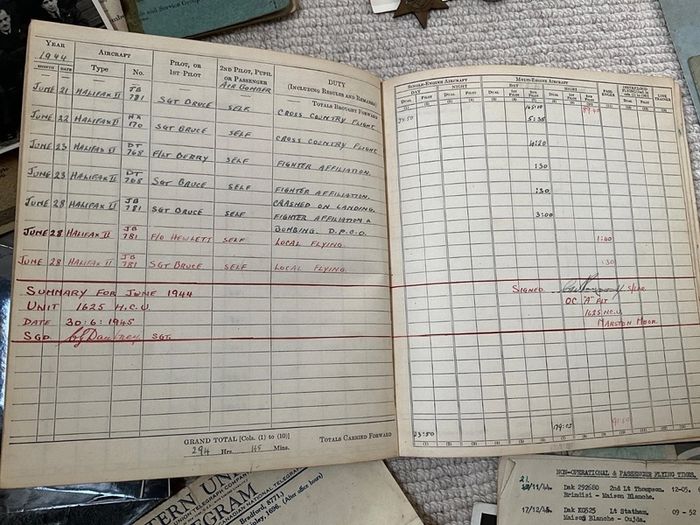 with Service Group
YEAR
1944
AIRCRAFT
PILOT, OR
1ST PILOT
2ND PILOT, PUPIL
OR PASSENGER
AIR GUNNER
DUTY
(INCLUDING RESULTS AND REMARKS)
MONTH DATE Type No.
TOTALS BROUGHT FORWARD
JUNE 21 HALIFAX II JB 781 SGT BRUCE SELF CROSS COUNTRY FLIGHT
JUNE 22 HALIFAX II 170 SGT BRUCE SELF CROSS COUNTRY FLIGHT
JUNE 23 HALIFAX II DT 768 F/LT BERRY SELF FIGHTER AFFILIATION.
JUNE 23 HALIFAX II DT 768 SGT BRUCE SELF FIGHTER AFFILIATION.
CRASHED ON LANDING.
JUNE 28 HALIFAX II JB 781 SGT BRUCE SELF FIGHTER AFFILIATION &
BOMBING. D.P.C.O.
JUNE 28 HALIFAX II JB 781 F/O HEWLETT SELF LOCAL FLYING.
JUNE 28 HALIFAX II JB 781 SGT BRUCE SELF LOCAL FLYING.
SUMMARY FOR JUNE 1944
UNIT 1625 H.C.U.
DATE 30:6:1945
SGD SGT.
GRAND TOTAL [Cols. (1) to (10)]
294 Hrs. 45 Mins.
TOTALS CARRIED FORWARD
SINGLE-ENGINE AIRCRAFT
MULTI-ENGINE AIRCRAFT
DAY NIGHT DAY NIGHT
DUAL PILOT DUAL PILOT DUAL
5:35
4:20
1:30
1:30
3:00
1:40
:30
SIGNED S/LDR
OC "A" FLT
1625 H.C.U.
MARSTON MOOR.
23:50
179:15
WESTERN UNION
TELEGRAM
Bradford,
(After office hours)
NON-OPERATIONAL & PASSENGER FLYING TIMES.
Dak 292680 2nd Lt Thompson. 12-05.
Brindisi - Maison Blanche.
17/12/45. Dak KG525 Lt Statham. 09 -
Maison Blanche - Oujda.